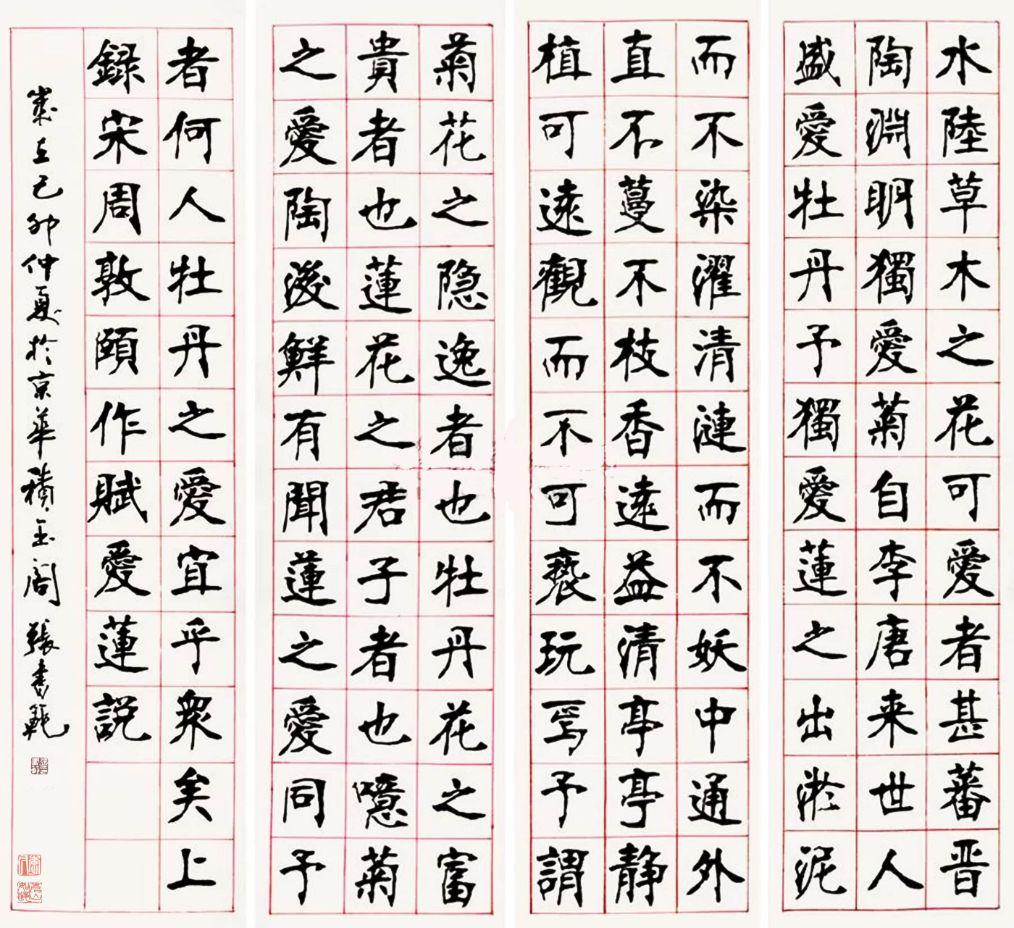 水陸草木之花可愛者甚蕃晋
陶淵明獨愛菊自李唐来世人
盛愛牡丹予獨愛蓮之出淤泥
而不染濯清漣而不妖中通外
直不蔓不枝香遠益清亭亭静
植可遠觀而不可褻玩焉予謂
菊花之隐逸者也牡丹花之富
貴者也蓮花之君子者也噫菊
之愛陶後鮮有聞蓮之愛同予
者何人牡丹之愛宜乎衆矣上
録宋周敦頤作賦愛蓮説
歲在己卯仲夏於京華積玉閣張書範